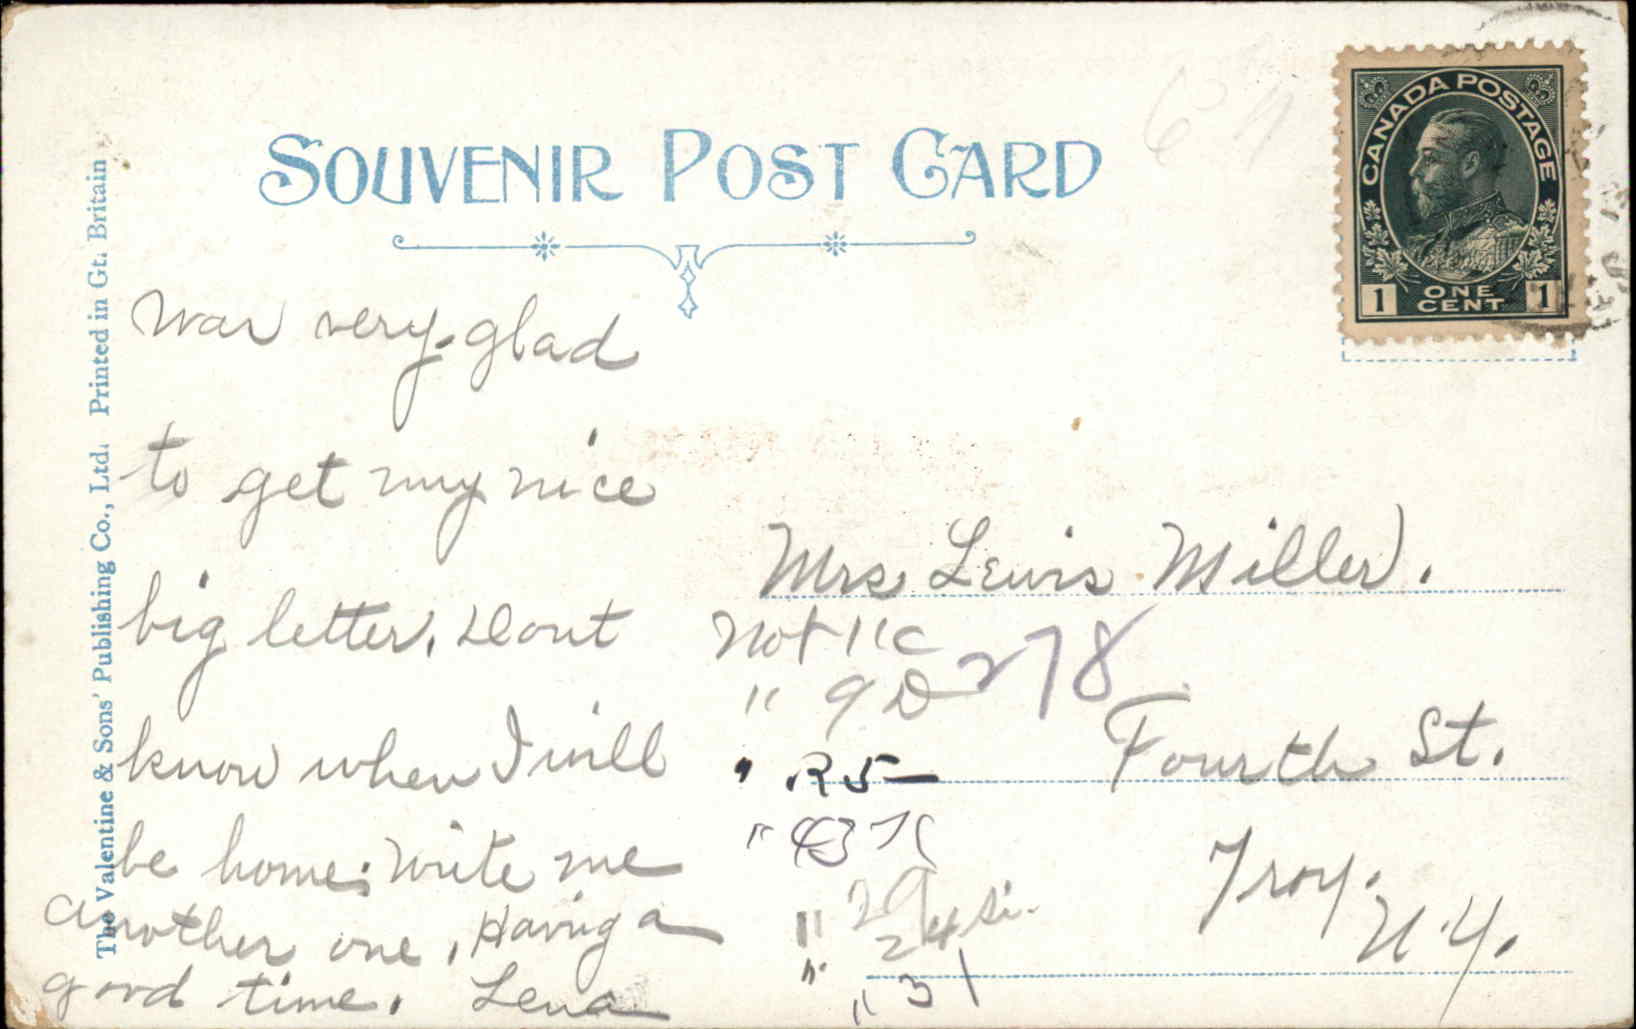 SOUVENIR POST CARD
CANADA POSTAGE
1 ONE CENT 1
The Valentine & Sons' Publishing Co., Ltd. Printed in Gt. Britain
Was very glad
to get my nice
big letter. Dont
know when I will
be home. Write me
another one. Having a
good time. Lena
Mrs Lewis Miller.
278
Fourth St.
Troy.
N.Y.
Not 11 C
" 9 D
" R5
" 43 K
" 29
" 24 Si.
" 31